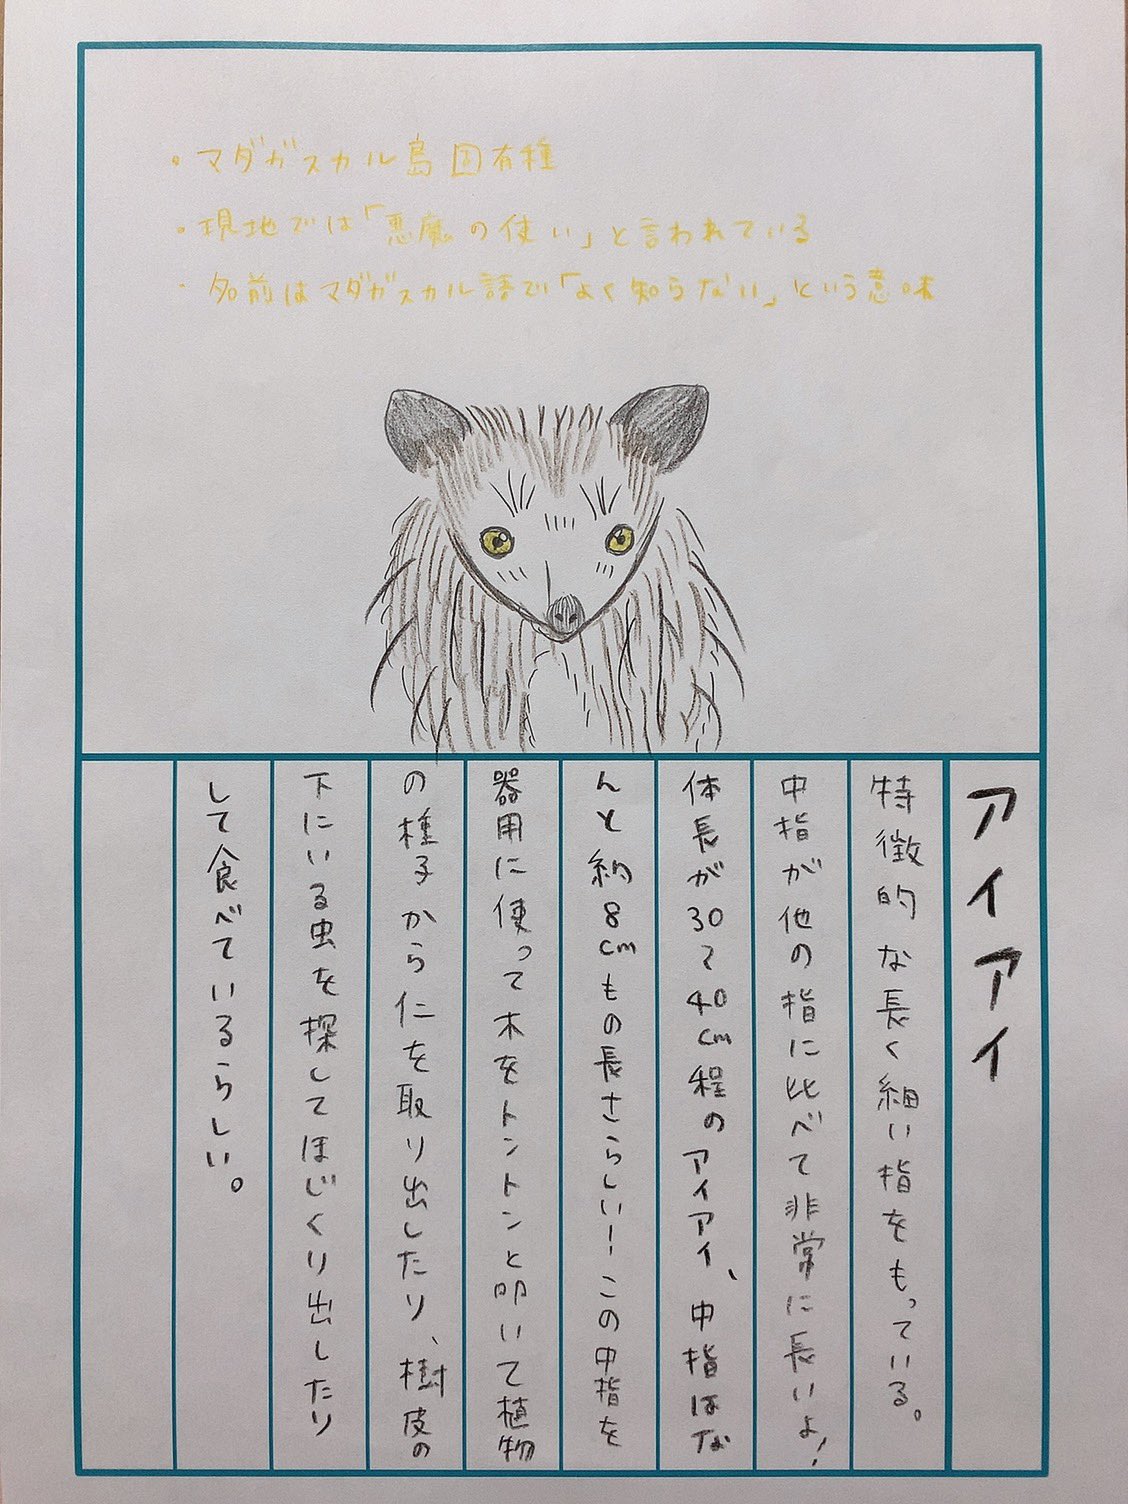 ・マダガスカル島固有種
・現地では「悪魔の使い」と言われている
・名前はマダガスカル語で「よく知らない」という意味
アイアイ
特徴的な長く細い指をもっている。
中指が他の指に比べて非常に長いよ!
体長が30〜40cm程のアイアイ、中指はな
んと約8cmもの長さらしい!この中指を
器用に使って木をトントンと叩いて植物
の種子から仁を取り出したり、樹皮の
下にいる虫を探してほじくり出したり
して食べているらしい。